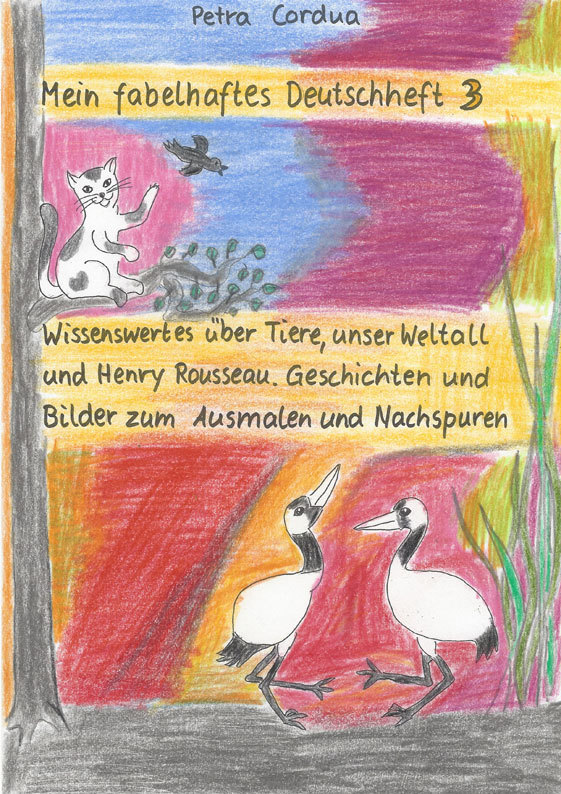 Petra Cordua
Mein fabelhaftes Deutschheft 3
Wissenswertes über Tiere, unser Weltall
und Henry Rousseau. Geschichten und
Bilder zum Ausmalen und Nachspuren